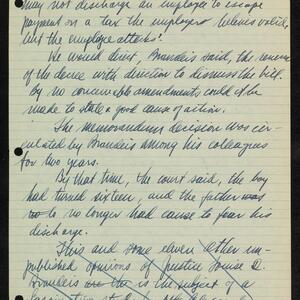 may not discharge an employee to escape
payment on a tax the employer believes valid,
but the employee attacks."
We would direct, Brandeis said, the reversal
of the decree with direction to dismiss the bill.
By no conceivable amendments could it be
made to state a good cause of action.
The memorandum decision was cir-
culated by Brandeis among his colleagues
for two years.
By that time, the court said, the boy
had turned sixteen, and the father was
no longer had cause to fear his
discharge.
This and some eleven other un-
published opinions of Justice Louis D.
Brandeis is the subject of a